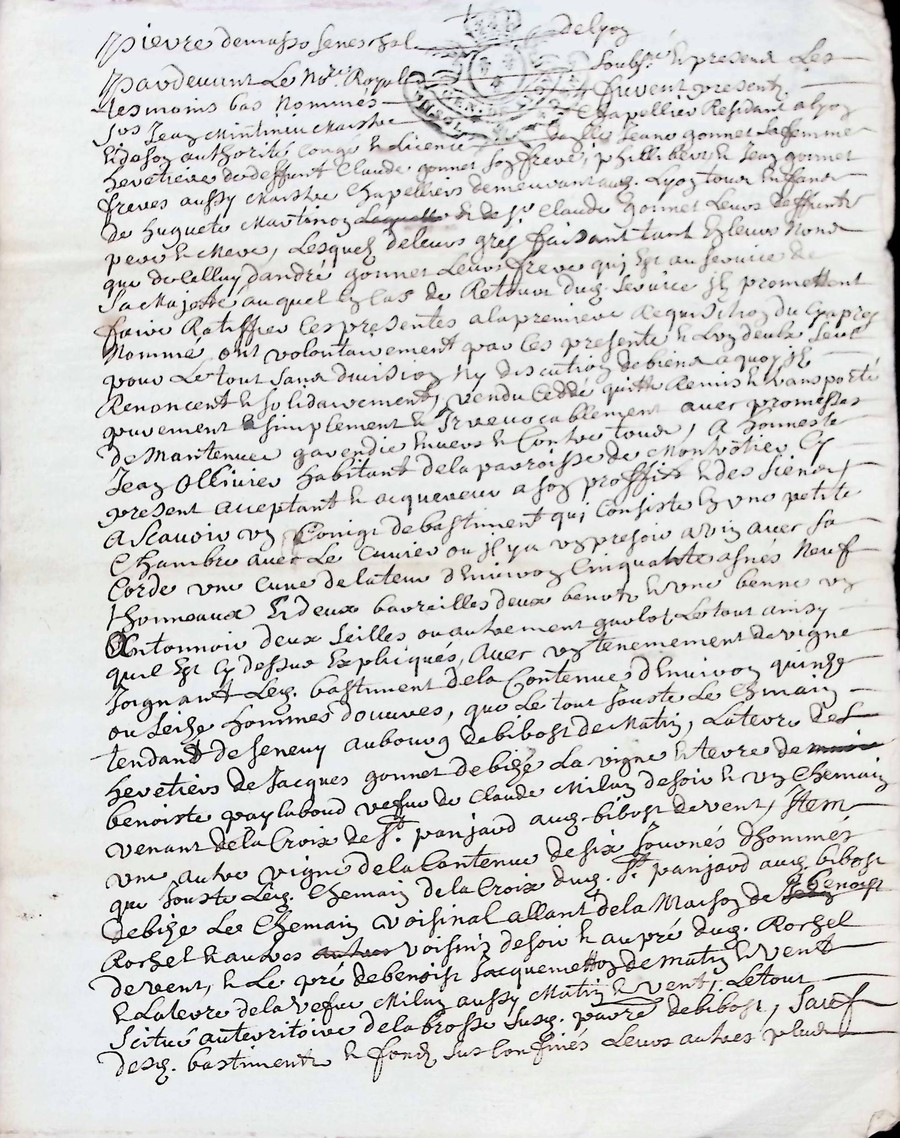 Pierre demasso seneschal de lyon
Pardevant Le No.re Royal soubs.é & presens Les
tesmoins bas Nommés furent presents
Jean Maistre Chapellier Residant a lyon
& de son authorité Congé & licence Jeane gonnet sa femme
heretiere de deffunt Claude gonnet son frere, phillibert, & Jean gonnet
freres aussy Maistre Chapelliers demeurant aud. Lyon tous Enfans
de huguete Martinon & de S.r Claude gonnet Leurs deffunts
pere & Mere, Lesquels de leurs grés faisant tant En leurs Noms
que de Celluy dandré gonnet Leurs frere qui Est au service de
Sa Majesté auquel En Cas de Retour dud. service Il promettent
faire Ratiffier Ces presentes a la premiere Requisition du Cy apres
Nommé, ont volontairement par Ces presente & Lun deulx seul
pour Le tout sans division Ny discution de biens a quoy Ils
Renoncent & solidairement, vendu Ceddé quitté Remis & transporté
purement & simplement & Irrevocablement avec promesses
de Mantenue garendie Envers & Contre tous, A honneste
Jean Ollivier habitant de la parroisse de Montrotier Cy
present acceptant & acquereur a son proffit & des siens
A Scavoir un Corige de bastiment qui Consiste En une petite
Chambre avec Le Cuvier ou Il y a un presoir a vin avec sa
Corde une Cuve de la teneur d'Environ Cinquante asnés Neuf
thonneaux Et deux barrailles deux benots & une benne un
Antonnoir deux seilles ou autrement gaulot Le tout ainsy
quil Est Cy dessus Expliqués, avec un tenemement de vigne
Joignant Led. bastiment de la Contenue d'Environ quinze
ou seize hommes douvres, que Le tout Jouste Le Chemain
tendant de seneuy au bourg de bibost de Matin, La terre des
heretiers de Jacques gonnet de bize La vigne & terre de
benoiste paylaboud vefue de Claude Milan de soir & un Chemain
venant de la Croix de S.t panjard aud. bibost de vent, Item
une autre vigne de la Contenue de six Journés d'hommés
que Jouste Led. Chemain de la Croix dud. S.t panjard aud. bibost
de bize Le Chemain voisinal allant de la Maison de
Rochel & autres voisins de soir & au pré dud. Rochel
de vent, & Le pré de benoist Jacquemetton de Matin & vent
& La terre de la vefue Milan aussy Matin & vent, Le tout
scitué au territoire de la brosse susd. parr.e de bibost, sauf
desd. bastiments & fonds sus Confinés Leurs autres plus